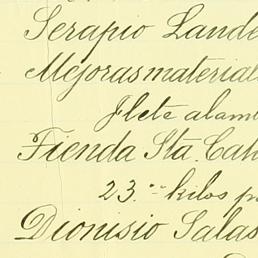 Serapio Lande
Mejoras material
Flete alam
Tienda Sta. Cat
23.°° kilos p
Dionisio Salas